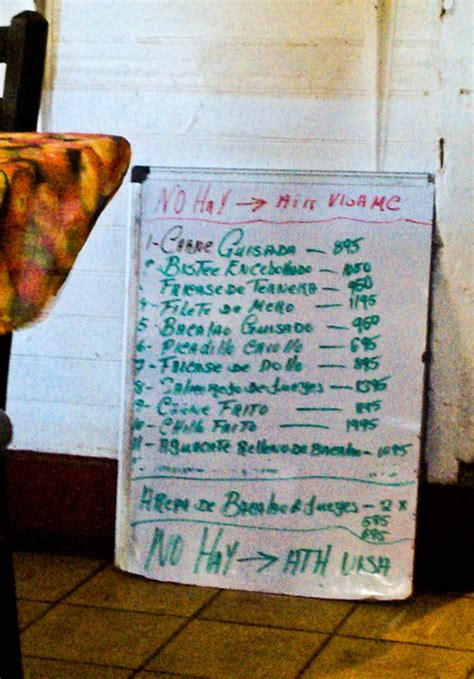 NO HAY → ATH VISA MC
1- CARNE GUISADA — 895
BISTEC ENCEBOLLADO —
FRICASE DE TERNERA — 950
4- FILETE DE MERO — 1195
5- BACALAO GUISADO — 950
6- PICADILLO CRIOLLO — 695
7- FRICASE DE POLLO — 895
8- SALMOREJO DE JUEYES — 1395
9- CARNE FRITO — 895
CHILLO FRITO — 1995
11- AGUACATE RELLENO DE BACALAO — 1095
AREPA DE BACALAO & JUEYES — 2 X
595
695
NO HAY → ATH VISA